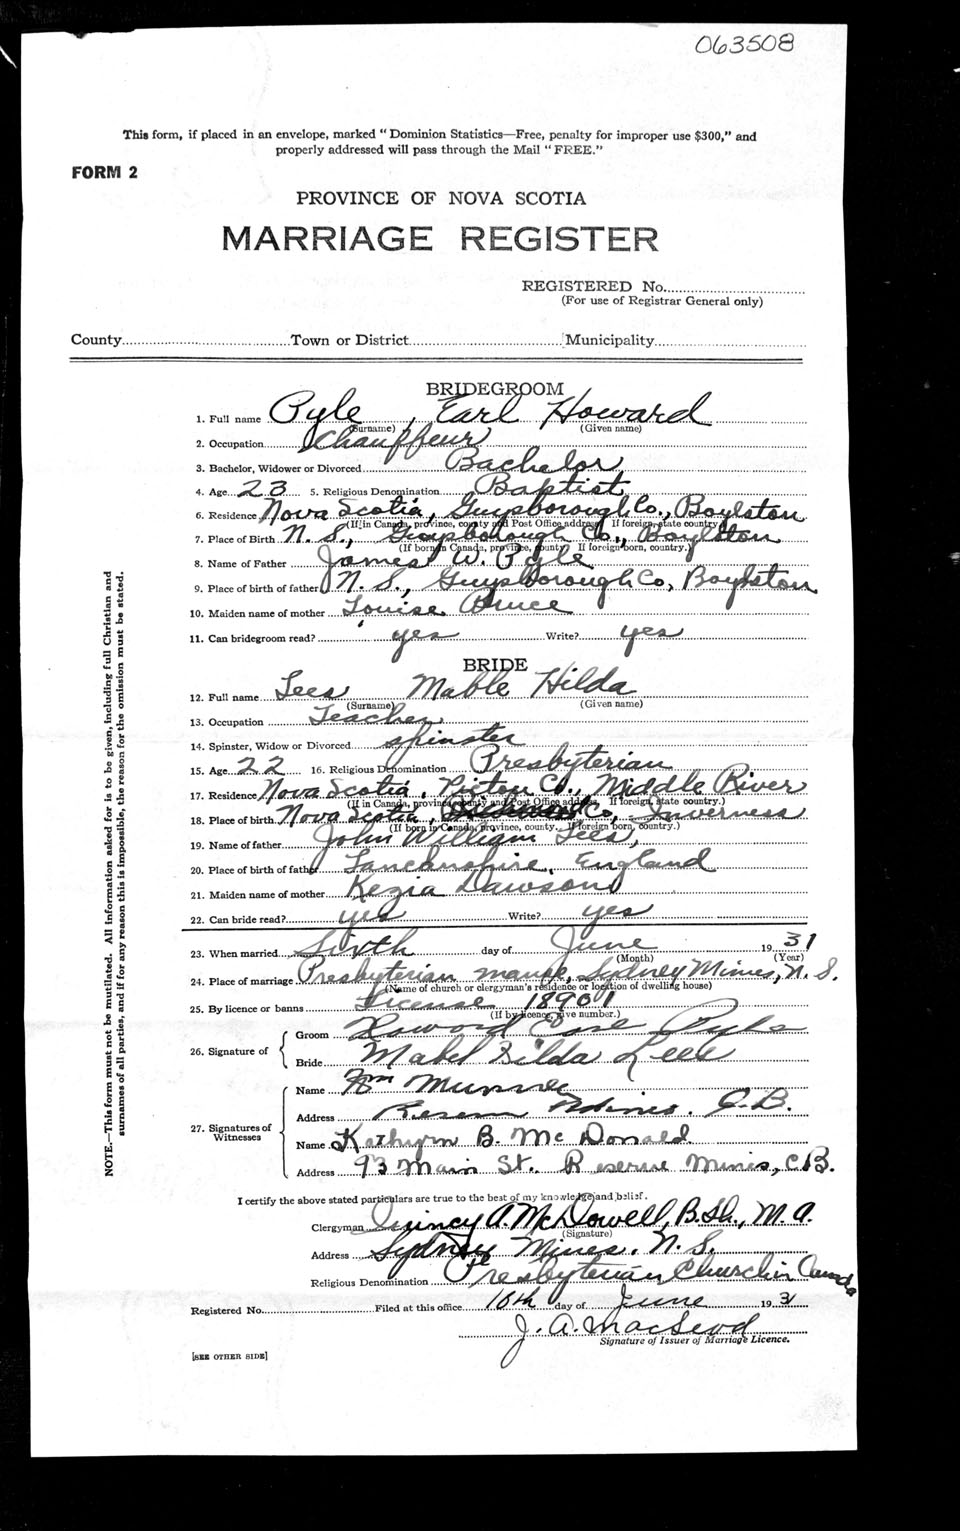 063508
This form, if placed in an envelope, marked "Dominion Statistics—Free, penalty for improper use $300," and
properly addressed will pass through the Mail "FREE."
FORM 2
PROVINCE OF NOVA SCOTIA
MARRIAGE REGISTER
REGISTERED No.
(For use of Registrar General only)
County Town or District Municipality
BRIDEGROOM
1. Full name Pyle, Earl Howard
(Surname) (Given name)
2. Occupation Chauffeur
3. Bachelor, Widower or Divorced Bachelor
4. Age 23 5. Religious Denomination Baptist
6. Residence Nova Scotia, Guysborough Co., Boylston
(If in Canada, province, county and Post Office address. If foreign, state country.)
7. Place of Birth N. S., Guysborough Co., Boylston
(If born in Canada, province, county. If foreign born, country.)
8. Name of Father James W. Pyle
9. Place of birth of father N. S., Guysborough Co, Boylston
10. Maiden name of mother Louise Bruce
11. Can bridegroom read? yes Write? yes
BRIDE
12. Full name Lees Mable Hilda
(Surname) (Given name)
13. Occupation Teacher
14. Spinster, Widow or Divorced spinster
15. Age 22 16. Religious Denomination Presbyterian
17. Residence Nova Scotia, Pictou Co., Middle River
(If in Canada, province, county and Post Office address. If foreign, state country.)
18. Place of birth Nova Scotia, Co, Inverness
(If born in Canada, province, county. If foreign born, country.)
19. Name of father John William Lees,
20. Place of birth of father Lancanshire, England
21. Maiden name of mother Kezia Dawson
22. Can bride read? yes Write? yes
23. When married Sixth day of June 1931
(Month) (Year)
24. Place of marriage Presbyterian manse, Sydney Mines, N. S.
(Name of church or clergyman's residence or location of dwelling house)
25. By licence or banns License 18901
(If by licence, give number.)
26. Signature of
Groom Howard Earl Pyle
Bride Mabel Hilda Lees
27. Signatures of Witnesses
Name Wm Munroe
Address Reserve Mines. C.B.
Name Kathryn B. McDonald
Address 93 Main St. Reserve Mines, C.B.
I certify the above stated particulars are true to the best of my knowledge and belief.
Clergyman Quincy A. McDowell, B.Th., M.A.
(Signature)
Address Sydney Mines. N. S.
Religious Denomination Presbyterian Church in Canada
Registered No. Filed at this office 10th day of June 1931
J. A. MacLeod
Signature of Issuer of Marriage Licence.
[SEE OTHER SIDE]
NOTE.—This form must not be mutilated. All information asked for is to be given, including full Christian and
surnames of all parties, and if for any reason this is impossible, the reason for the omission must be stated.